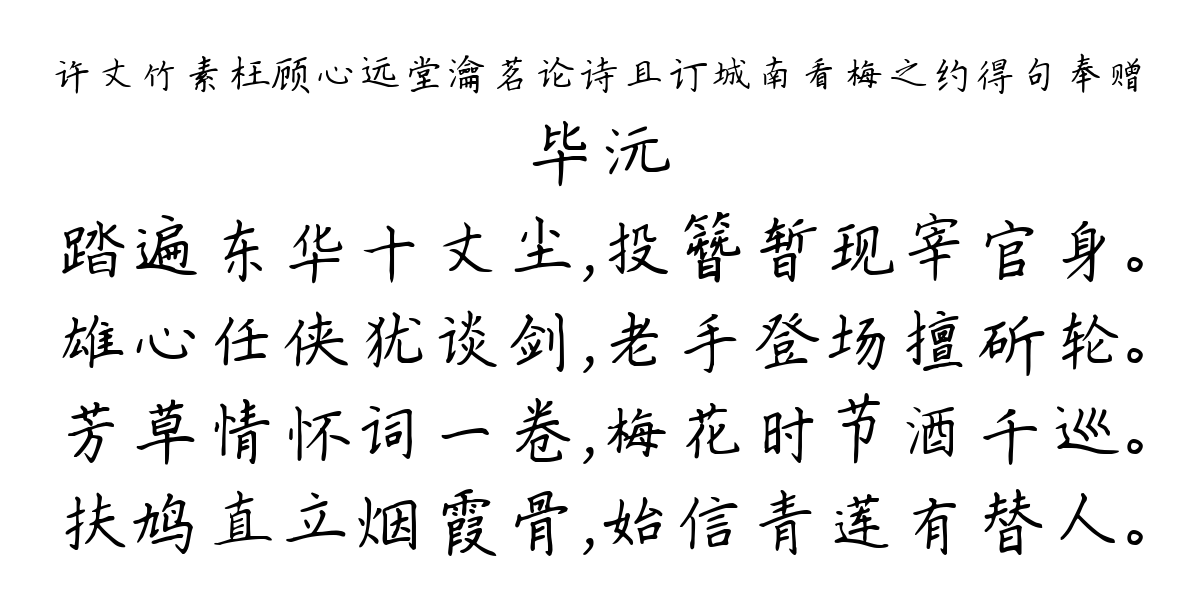 许丈竹素枉顾心远堂瀹茗论诗且订城南看梅之约得句奉赠
毕沅
踏遍东华十丈尘,投簪暂现宰官身。
雄心任侠犹谈剑,老手登场擅斫轮。
芳草情怀词一卷,梅花时节酒千巡。
扶鸠直立烟霞骨,始信青莲有替人。